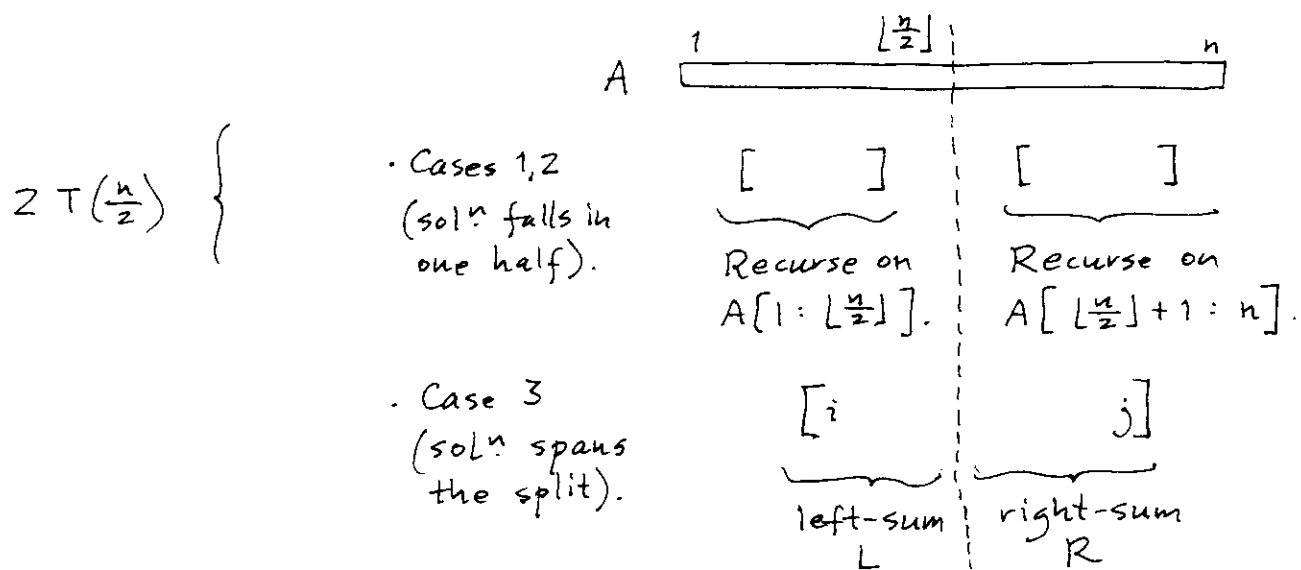 1 ⌊n/2⌋ n
A
2 T(n/2) {
· Cases 1,2
(solⁿ. falls in
one half).
[ ] [ ]
Recurse on Recurse on
A[1 : ⌊n/2⌋]. A[⌊n/2⌋ + 1 : n].
· Case 3
(solⁿ. spans
the split).
[i j]
left-sum right-sum
L R